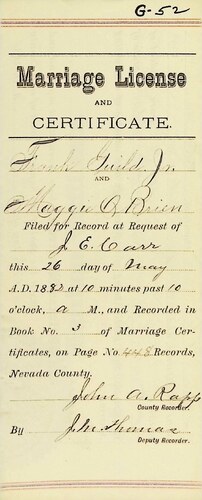 G-52
Marriage License
AND
CERTIFICATE.
Frank Guild Jr.
AND
Maggie O Brien
Filed for Record at Request of
J. E. Carr
this 26 day of May
A.D. 1882 at 10 minutes past 10
o'clock, a M., and Recorded in
Book No. 3 of Marriage Cer-
tificates, on Page No. 448 Records,
Nevada County.
John A. Rapp
County Recorder.
By J. M. Thomas
Deputy Recorder.